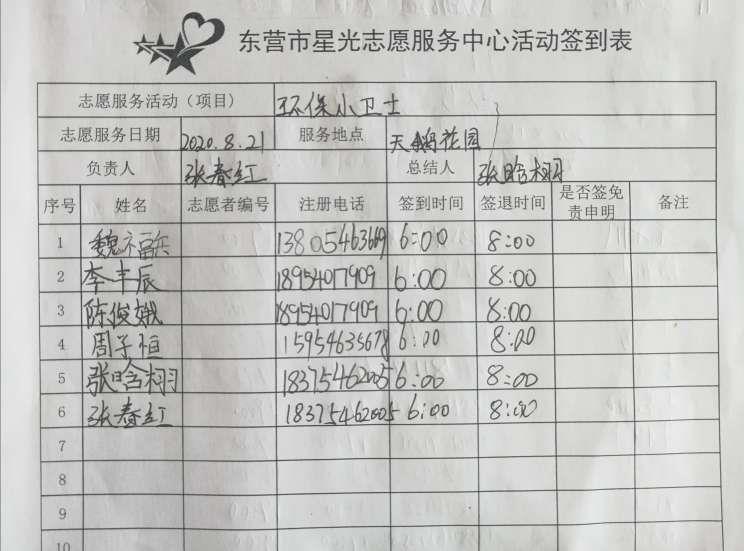 东营市星光志愿服务中心活动签到表
志愿服务活动（项目） 环保小卫士
志愿服务日期 2020.8.21 服务地点 天鹅花园
负责人 张春红 总结人 张晗栩
序号 姓名 志愿者编号 注册电话 签到时间 签退时间 是否签免责申明 备注
1 魏福东 13805463669 6:00 8:00
2 李丰辰 18954017909 6:00 8:00
3 陈俊娥 18954017909 6:00 8:00
4 周子恒 15954635678 6:00 8:00
5 张晗栩 18375462005 6:00 8:00
6 张春红 18375462005 6:00 8:00
7
8
9
10